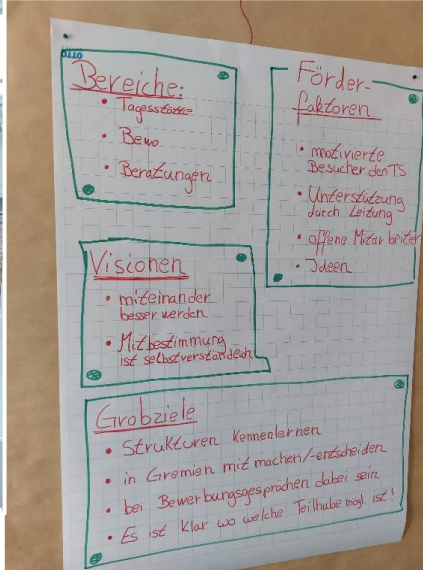 OTTO
Bereiche:
• Tagesstätte
• Bewo
• Beratungen
Förder-
faktoren
• motivierte
Besucher den TS
• Unterstützung
durch Leitung
• offene Mitarbeiter
• Ideen
Visionen
• miteinander
besser werden
• Mitbestimmung
ist selbstverständlich
Grobziele
• Strukturen kennenlernen
• in Gremien mitmachen/-entscheiden
• bei Bewerbungsgesprächen dabei sein
• Es ist klar wo welche Teilhabe mögl. ist!